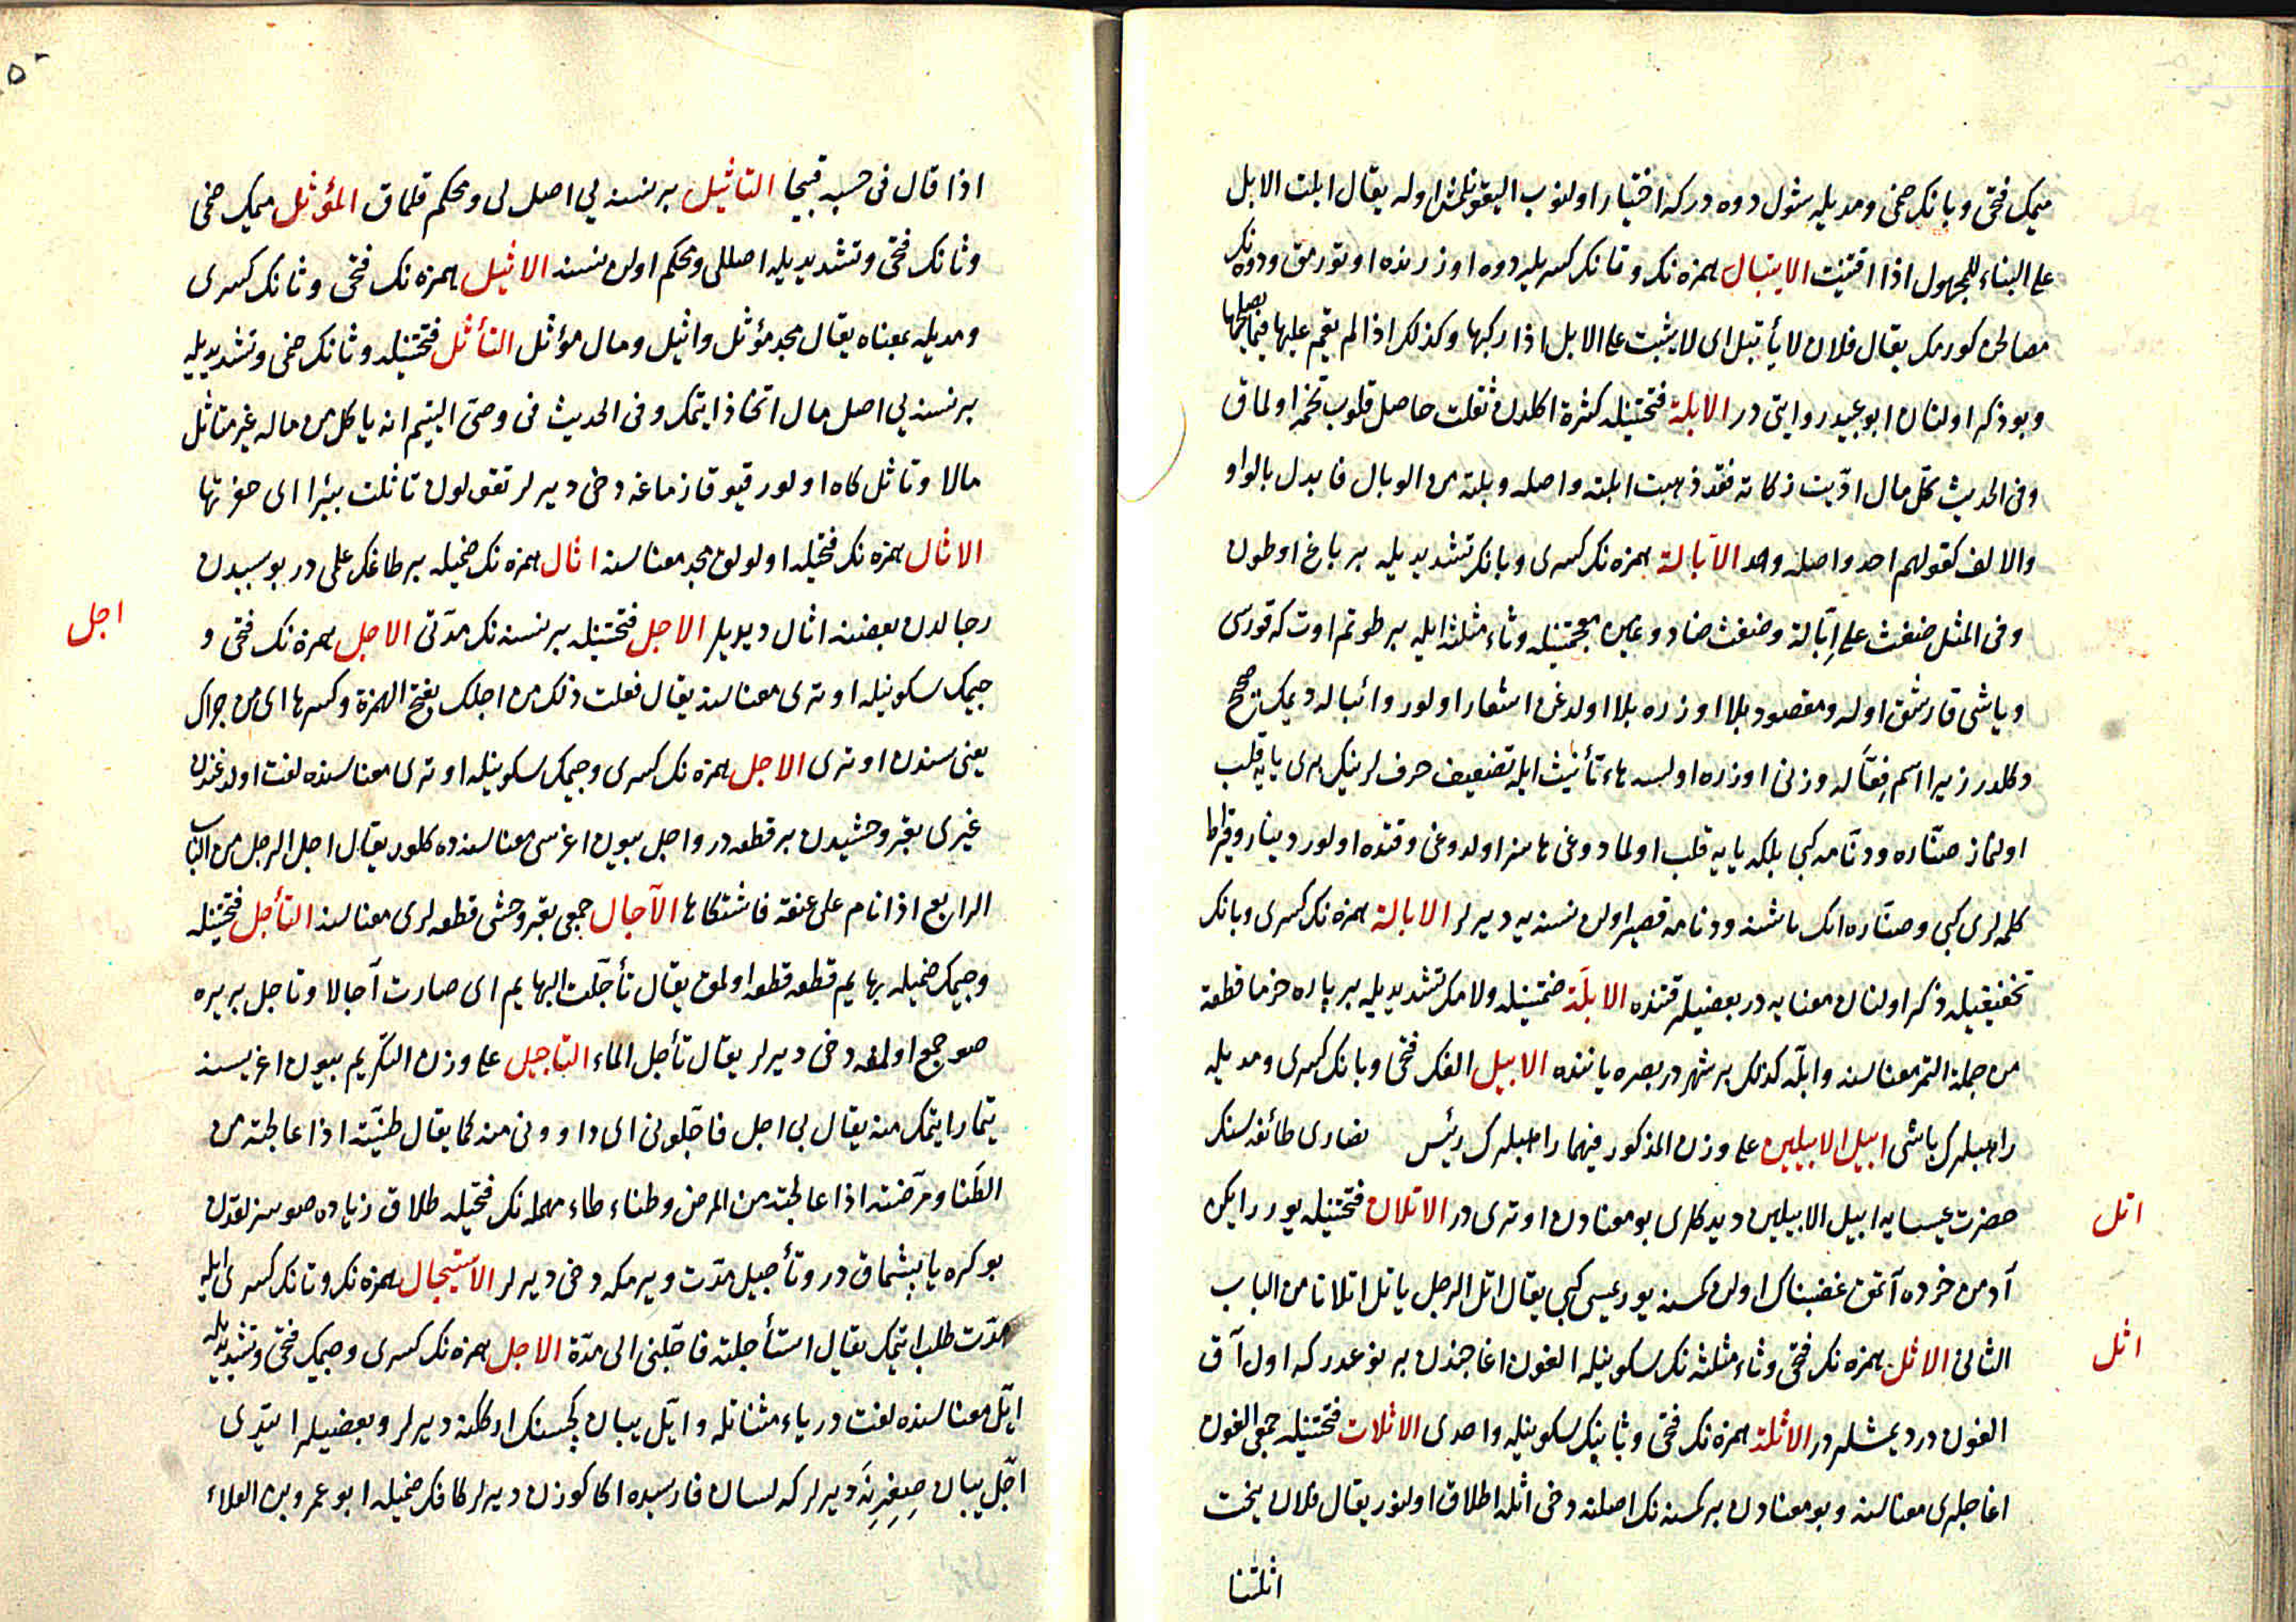 ميمك فتحى وبانك ضمى ومديله شول دوه دركه اختيار اولنوب اليقونلمش اوله يقال ابلت الابل
على البناء للمجهول اذا اقتنيت الايتبال همزه نك وتانك كسريله دوه اوزرنده اوتورمق ودوه نك
مصالحن كورمك يقال فلان لا يأتبل اى لا يثبت على الابل اذا ركبها وكذلك اذا لم يقم عليها فيما يصلحها
وبو ذكر اولنان ابو عبيد روايتى در الابلة فتحتينله كثرة اكلدن ثقلت حاصل قلوب تخمه اولماق
وفى الحديث كل مال اديت زكاته فقد ذهبت ابلته واصله وبلته من الوبال فابدل بالواو
والالف كقولهم احد واصله وحد الابالة همزه نك كسرى وبانك تشديديله بر باغ اوطون
وفى المثل ضغث على ابالة وضغث ضاد وغين معجمتينله وثاء مثلثه ايله بر طوتم اوت كه قورسى
وياشى قارشق اوله ومقصود بلا اوزره بلا اولدغن اشعار اولور وائباله ديمك صحيح
دكلدر زيرا اسم فعّاله وزنى اوزره اولسه هاء تأنيث ايله تضعيف حرف لرينك برى يايه قلب
اولنماز صنّاره ودنّامه كبى بلكه يايه قلب اولمادوغى هاسز اولدوغى وقتده اولور دينار وقيراط
كلمه لرى كبى وصنّاره اكك باشنه ودنامه قصير اولن نسنه يه ديرلر الابالة همزه نك كسرى وبانك
تخفيفيله ذكر اولنان معنايه در بعضيلر قتنده الابلّة ضمتينله ولامك تشديديله بر پاره خرما قطعة
من جملة التمر معناسنه وابلّه كذلك بر شهر در بصره ياننده الابيل الفك فتحى وبانك كسرى ومديله
راهبلرك باشى ابيل الابيلين على وزن المذكور فيهما راهبلرك رئيس نصارى طائفه سنك
حضرت عيسايه ابيل الابيلين ديدكلرى بو معنادن اوترى در الاتلان فتحتينله يورر ايكن
اتل
آدمن خرده آتمق غضبناك اولن كمسنه يوريسى كبى يقال اتل الرجل ياتل اتلانا من الباب
الثانى الاثل همزه نك فتحى وثاء مثلثه نك سكونيله الغون اغاجندن بر نوعدر كه اول آق
اثل
الغون در ديمشلر در الاثلة همزه نك فتحى وثانيك سكونيله واحدى الاثلات فتحتينله جمعى الغون
اغاجلرى معناسنه وبو معنادن بر كمسنه نك اصلنه دخى اثله اطلاق اولنور يقال فلان ينحت
اثلتنا
٥
اذا قال فى حسبه قبيحا التاثيل بر نسنه يى اصل لى ومحكم قلماق المؤثل ميمك ضمى
وثانك فتحى وتشديديله اصللى ومحكم اولن نسنه الاثيل همزه نك فتحى وثانك كسرى
ومديله بمعناه يقال مجد مؤثل واثيل ومال مؤثل التأثل فتحتينله وثانك ضمى وتشديديله
بر نسنه يى اصل مال اتخاذ ايتمك وفى الحديث فى وصى اليتيم انه ياكل من ماله غير متاثل
مالا وتاثل كاه اولور قيو قازماغه دخى ديرلر تقول تاثلت بئرا اى حفرتها
الاثال همزه نك فتحيله اولولق مجد معناسنه اثال همزه نك ضميله بر طاغك علمى در بو سببدن
رجالدن بعضنه اثال ديديلر الاجل فتحتينله بر نسنه نك مدّتى الاجل همزه نك فتحى و
اجل
جيمك سكونيله اوترى معناسنه يقال فعلت ذلك من اجلك بفتح الهمزة وكسرها اى من جراك
يعنى سندن اوترى الاجل همزه نك كسرى وجيمك سكونيله اوترى معناسنده لغت اولدغندن
غيرى بقر وحشيدن بر قطعه در واجل بيون اغرسى معناسنده كلور يقال اجل الرجل من الباب
الرابع اذا نام على عنقه فاشتكاها الآجال جمعى بقر وحشى قطعه لرى معناسنه التأجل فتحتينله
وجيمك ضميله بهايم قطعه قطعه اولمق يقال تأجلت البهايم اى صارت آجالا وتاجل بر يره
صو جمع اولمغه دخى ديرلر يقال تأجل الماء التاجيل على وزن التكريم بيون اغريسنه
تيمار ايتمك منه يقال بى اجل فاجّلونى اى داوونى منه كما يقال طنيّته اذا عالجته من
الطنا ومرّضته اذا عالجته من المرض وطناء طاء مهمله نك فتحيله طلاق زياده صوسزلقدن
بوكره يا بشماق در وتأجيل مدّت ويرمكه دخى ديرلر الاستيجال همزه نك وتانك كسرى ايله
مدّت طلب ايتمك يقال استأجلته فاجّلنى الى مدّة الاجل همزه نك كسرى وجيمك فتحى وتشديديله
ايّل معناسنده لغت در ياء مثناتله وايّل يبان كچيسنك اركلنه ديرلر وبعضيلر ايتدى
اجّل يبان صغرنه ديرلر كه لسان فارسيده اكا كوزن ديرلر كافك ضميله ابو عمرو بن العلاء